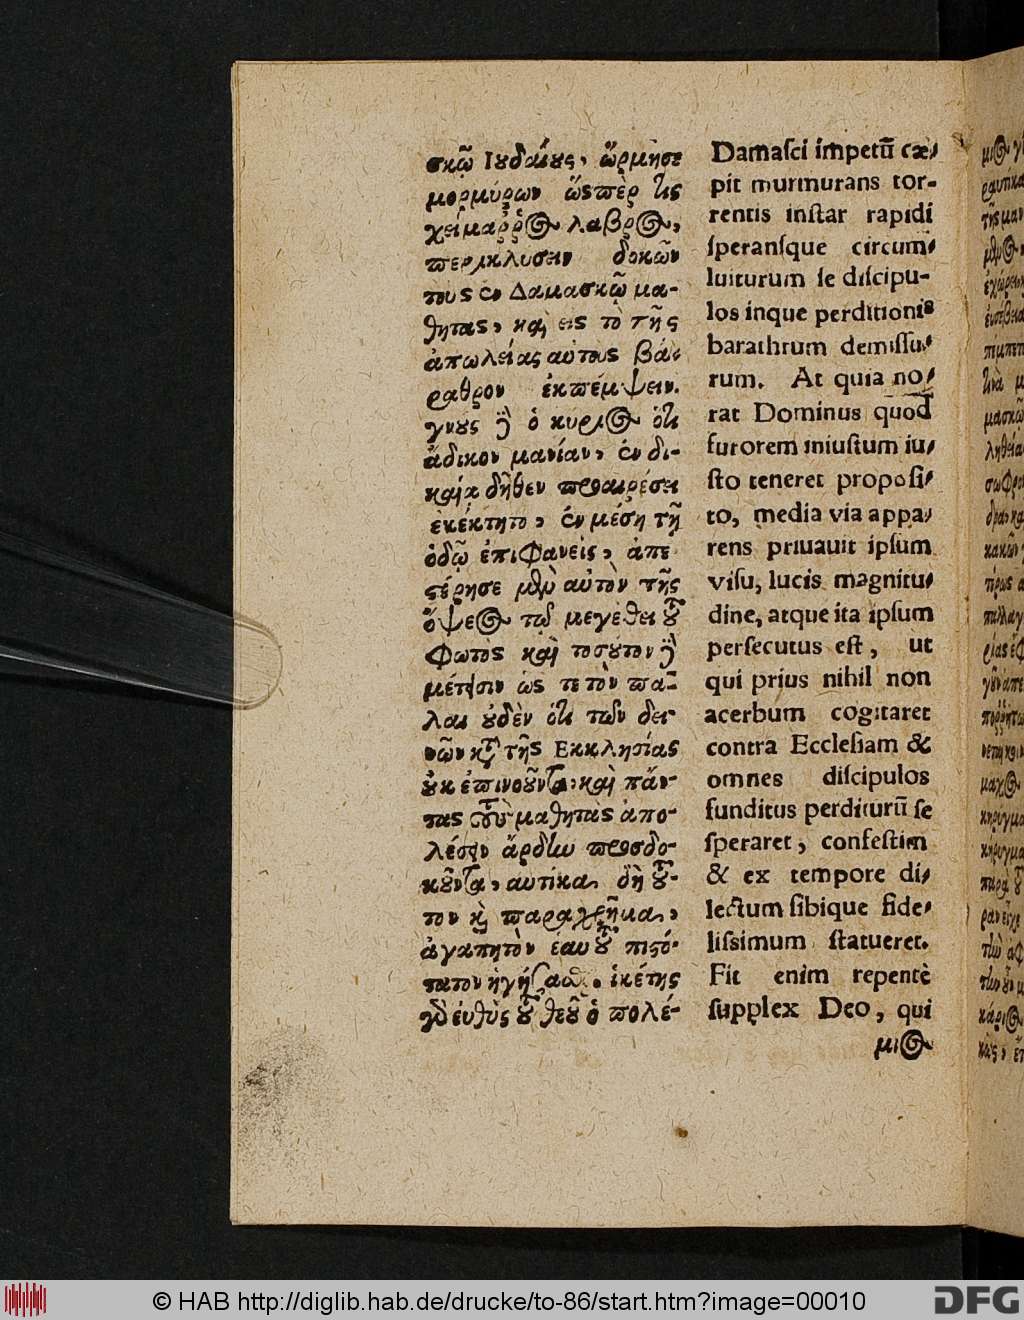 σκῷ Ιουδαίους, ὥρμησε
μορμύρων ὥσπερ τις
χείμαῤῥος λαβρος,
περικλυσειν δοκῶν
τους ἐν Δαμασκῷ μα-
θητας, καὶ εις τὸ τῆς
ἀπωλείας αὐτους βά-
ραθρον ἐκπέμψειν.
γνοὺς δὲ ὁ κυριος ὅτι
ἄδικον μανίαν, ἐν δι-
καίᾳ δῆθεν προαιρέσει
ἐκέκτητο, ἐν μέσῃ τῇ
ὁδῷ ἐπιφανεὶς, ἀπε
στέρησε μὲν αὐτὸν τῆς
ὄψεος τῷ μεγέθει τοῦ
φωτος καὶ τοσοῦτον δὲ
μέτησιν ὡς τε τὸν πά-
λαι οὐδὲν ὅτι τῶν δει-
νῶν κατὰ τῆς Εκκλησίας
οὐκ ἐπινοοῦντα, καὶ πάν-
τας τοὺς μαθητὰς ἀπο-
λέσειν ἄρδην προσδο-
κοῦντα, αυτίκα δὴ τοῦ-
τον καὶ παραχρῆμα,
ἀγαπητὸν ἑαυτοῦ πιστό-
τατον ἡγήσασθαι. ἱκέτης
γὰρ εὐθὺς τοῦ θεοῦ ὁ πολέ-
Damaſci impetū cæ-
pit murmurans tor-
rentis inſtar rapidi
ſperanſque circum-
luiturum ſe diſcipu-
los inque perditionis
barathrum demiſſu-
rum. At quia no-
rat Dominus quod
furorem iniuſtum iu-
ſto teneret propoſi-
to, media via appa-
rens priuauit ipſum
viſu, lucis magnitu-
dine, atque ita ipſum
perſecutus eſt, ut
qui prius nihil non
acerbum cogitaret
contra Eccleſiam &
omnes diſcipulos
funditus perditurū ſe
ſperaret, confeſtim
& ex tempore di-
lectum ſibique fide-
liſsimum ſtatueret.
Fit enim repentè
ſupplex Deo, qui
μιος
© HAB http://diglib.hab.de/drucke/to-86/start.htm?image=00010
DFG